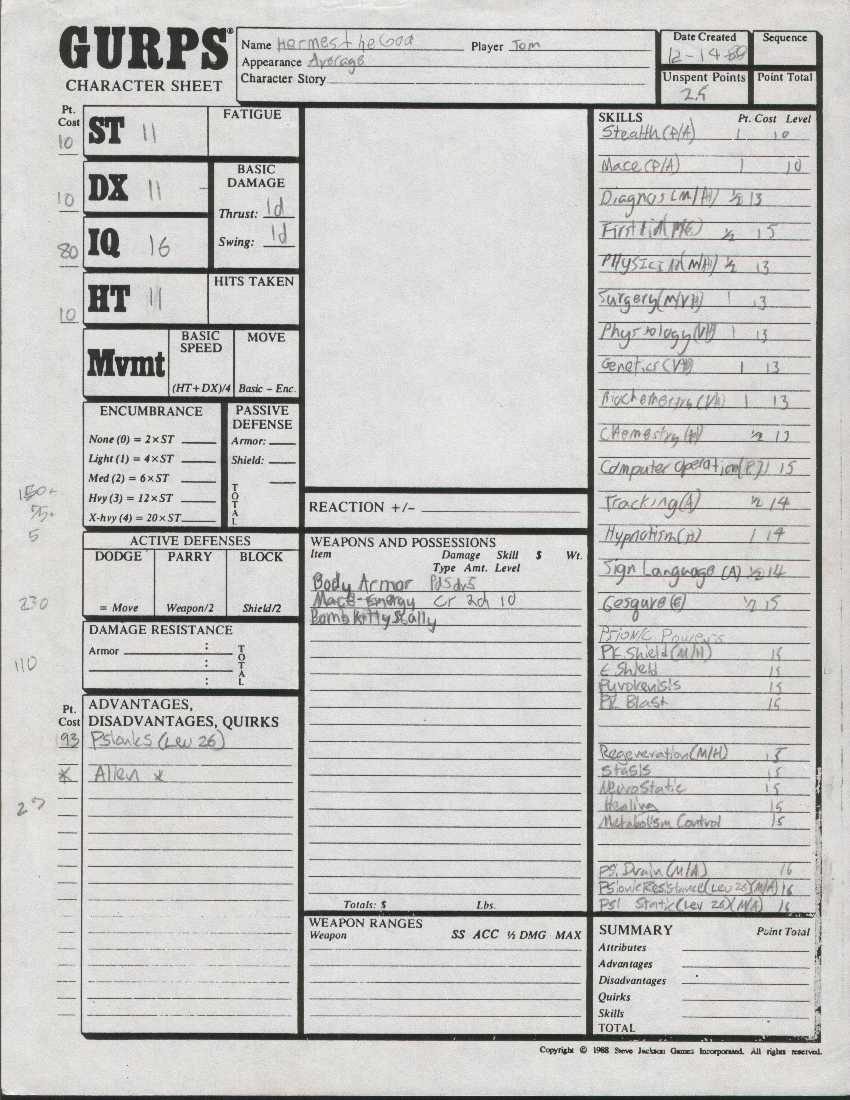 GURPS®
CHARACTER SHEET
Name Hermes the God Player Tom
Appearance Average
Character Story
Date Created
12-14-89
Sequence
Unspent Points
25
Point Total
Pt.
Cost
10 ST 11
FATIGUE
10 DX 11
BASIC
DAMAGE
Thrust: 1d
Swing: 1d
80 IQ 16
10 HT 11
HITS TAKEN
Mvmt
BASIC
SPEED
(HT+DX)/4
MOVE
Basic – Enc.
ENCUMBRANCE
None (0) = 2×ST
Light (1) = 4×ST
Med (2) = 6×ST
Hvy (3) = 12×ST
X-hvy (4) = 20×ST
PASSIVE
DEFENSE
Armor:
Shield:
TOTAL
150
5
230
110
ACTIVE DEFENSES
DODGE PARRY BLOCK
= Move Weapon/2 Shield/2
DAMAGE RESISTANCE
Armor : TOTAL
:
:
Pt.
Cost
ADVANTAGES,
DISADVANTAGES, QUIRKS
93 Psionics (Lev 26)
* Alien *
REACTION +/–
WEAPONS AND POSSESSIONS
Item Damage Skill $ Wt.
Type Amt. Level
Body Armor Pd5 dr5
Mace-Energy Cr 2d 10
Totals: $ Lbs.
WEAPON RANGES
Weapon SS ACC ½ DMG MAX
SKILLS Pt. Cost Level
Stealth (P/A) 1 10
Mace (P/A) 1 10
Diagnosis (M/H) ½ 13
First Aid (M/E) ½ 15
Physician (M/H) ½ 13
Surgery (M/VH) 1 13
Physiology (VH) 1 13
Genetics (VH) 1 13
Biochemestry (VH) 1 13
Chemestry (H) ½ 13
Computer Operation (E) 15
Tracking (A) ½ 14
Hypnotism (H) 1 14
Sign Language (A) ½ 14
Gesqure (E) ½ 15
Psionic Powers
PK Shield (M/H) 15
E Shield 15
Pyrokenisis 15
PK Blast 15
Regeneration (M/H) 15
Stasis 15
NeuroStatic 15
Healing 15
Metabolism Control 15
Psi Drain (M/A) 16
Psionic Resistance (Lev 26) (M/A) 16
Psi Static (Lev 26) (M/A) 16
SUMMARY Point Total
Attributes
Advantages
Disadvantages
Quirks
Skills
TOTAL
Copyright © 1988 Steve Jackson Games Incorporated. All rights reserved.